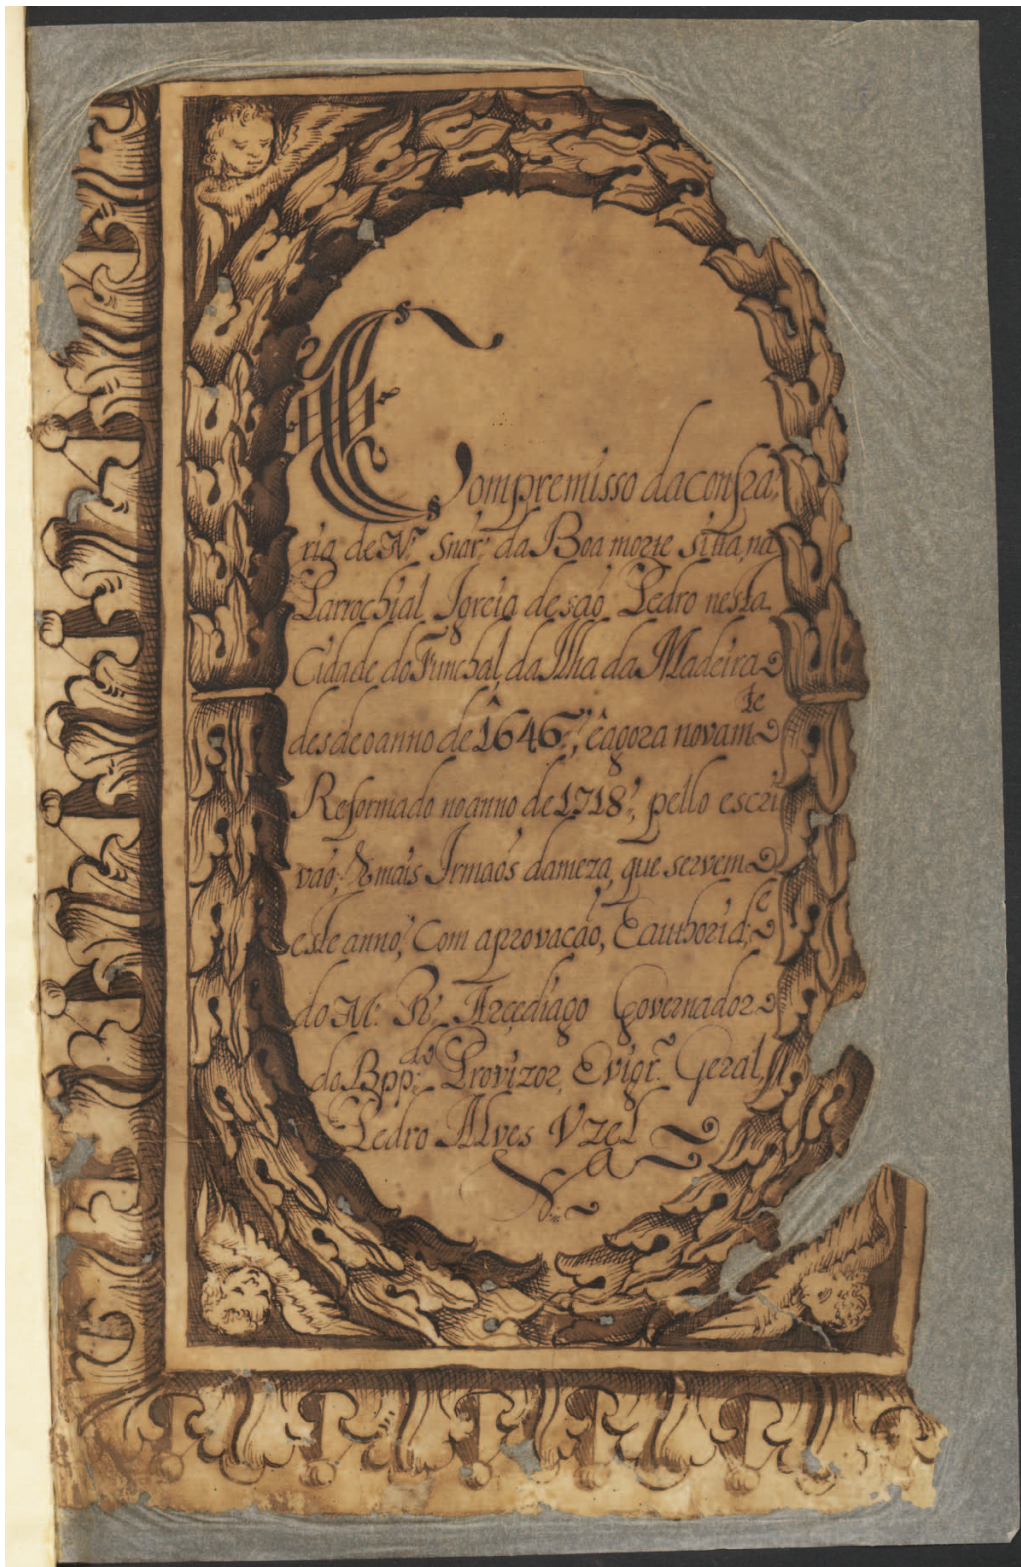 Compremisso da confra,
ria de N.ª Snār.ª da Boa morte sitta, na
Parrochial Igreia de são Pedro nesta
Cidade do Funchal da Ilha da Madeira
desde o anno de 1646, e agora novam.te
Reformado no anno de 1718, pello escri
vão, & mais Irmãos da meza, que servem
este anno, Com aprovacão, E authorid.e
do M. R. Arcediago Governador
do Bpp.do Provizor, E vigr.º Geral
Pedro Alvẽs Vzel